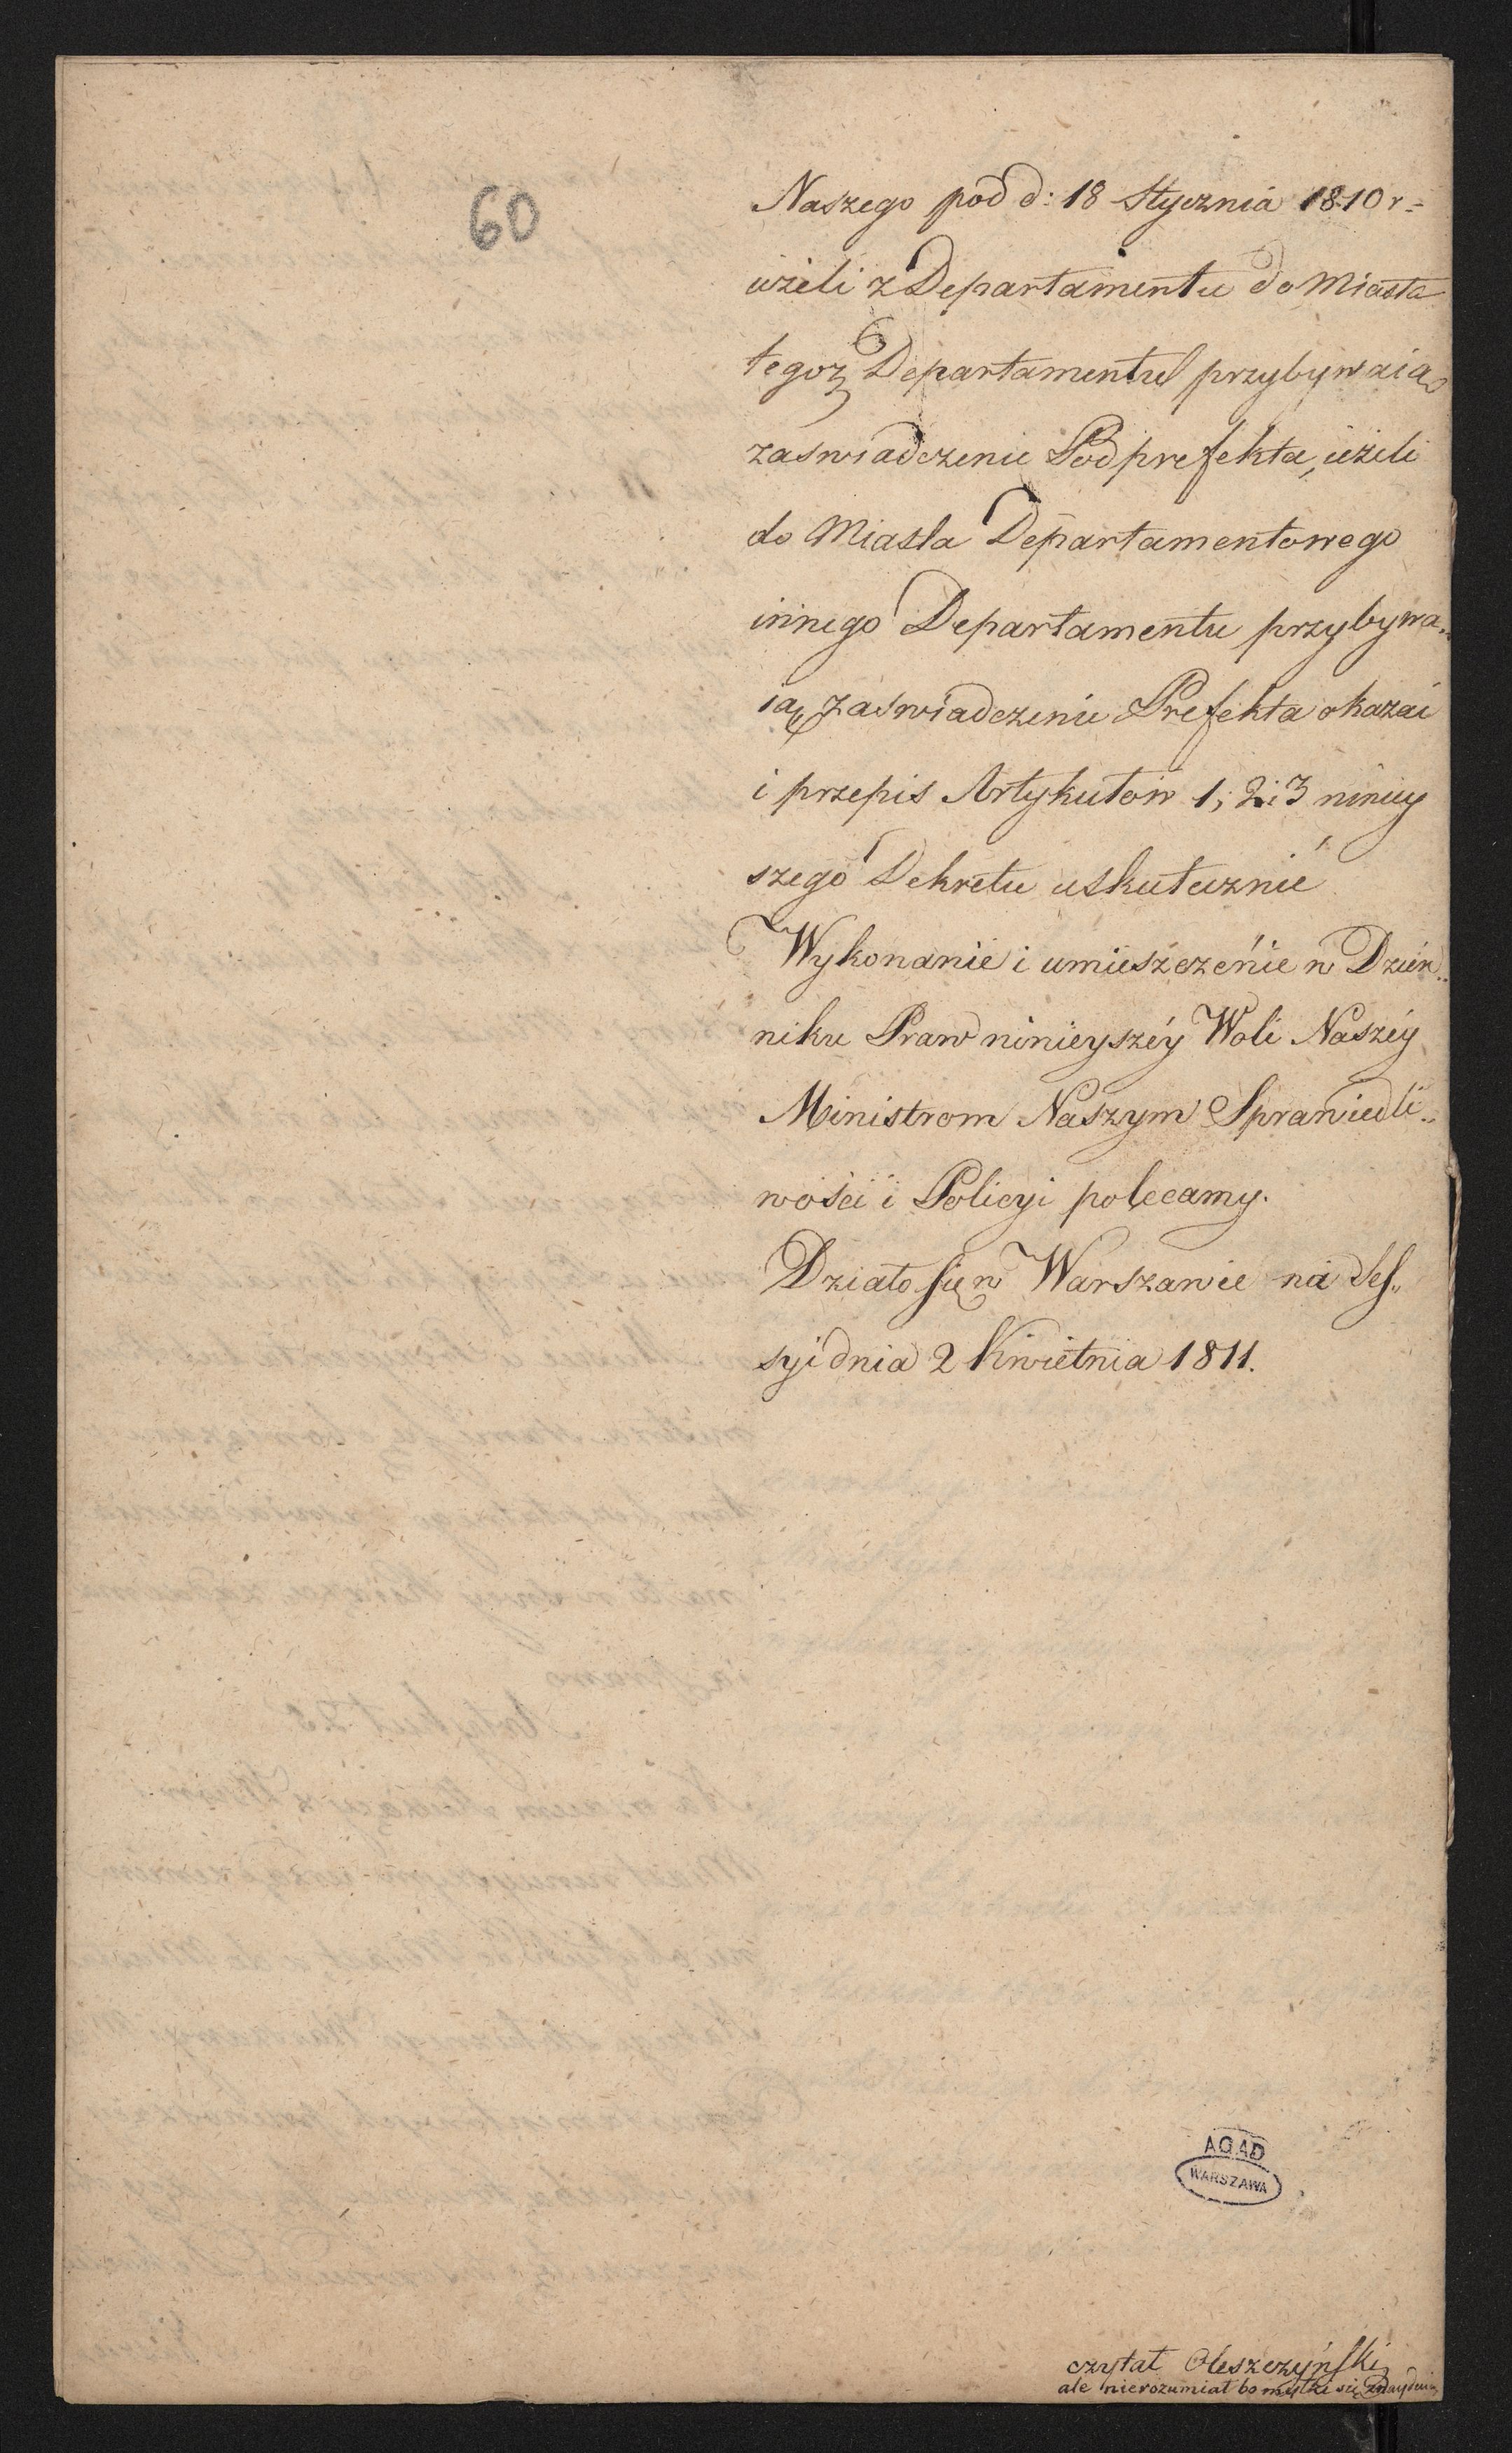 60
Naszego pod d: 18 Stycznia 1810 r=
ieżeli z Departamentu do Miasta
tegoż Departamentu przybywaią
zaswiadczenie Podprefekta, ieżeli
do Miasta Departamentowego
innego Departamentu przybywa„
ią, zaswiadczenie Prefekta okazać
i przepis Artykułow 1, 2 i 3 niniey
szego Dekretu uskutecznić
Wykonanie i umieszczenie w Dzien„
niku Praw ninieyszéy Woli Naszéy
Ministrom Naszym Sprawiedli„
wości i Policyi polecamy.
Działo się w Warszawie na Ses„
syi dnia 2 Kwietnia 1811.
AGAD
WARSZAWA
czytał Oleszczyński
ale nierozumiał bo myłki się